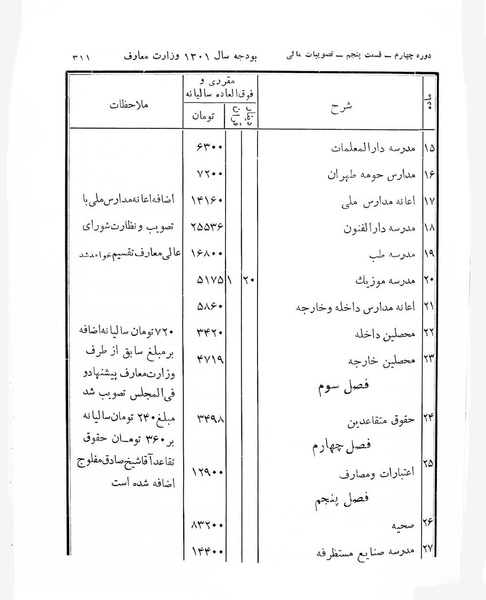 دوره چهارم ــ قسمت پنجم ــ تصویبات مالی
بودجه سال ۱۳۰۱ وزارت معارف
۳۱۱
ماده
شرح
مقرری و
فوق‌العاده سالیانه
دینار
قران
تومان
ملاحظات
۱۵ مدرسه دارالمعلمات ۶۳۰۰
۱۶ مدارس حومه طهران ۷۲۰۰
۱۷ اعانه مدارس ملی ۱۴۱۶۰ اضافه اعانه مدارس ملی با
۱۸ مدرسه دارالفنون ۲۵۵۳۶ تصویب و نظارت شورای
۱۹ مدرسه طب ۱۶۸۰۰ عالی معارف تقسیم خواهد شد
۲۰ مدرسه موزیک ۲۰ ۱ ۵۱۷۵
۲۱ اعانه مدارس داخله و خارجه ۵۸۶۰
۲۲ محصلین داخله ۳۴۲۰ ۷۲۰ تومان سالیانه اضافه
بر مبلغ سابق از طرف
۲۳ محصلین خارجه ۴۷۱۹
وزارت معارف پیشنهاد و
فصل سوم
فی‌المجلس تصویب شد
۲۴ حقوق متقاعدین ۳۴۹۸ مبلغ ۲۴۰ تومان سالیانه
فصل چهارم
بر ۳۶۰ تومان حقوق
۲۵ اعتبارات و مصارف ۱۲۹۰۰ تقاعد آقا شیخ صادق مفلوج
اضافه شده است
فصل پنجم
۲۶ صحیه ۸۳۲۰۰
۲۷ مدرسه صنایع مستظرفه ۱۴۴۰۰